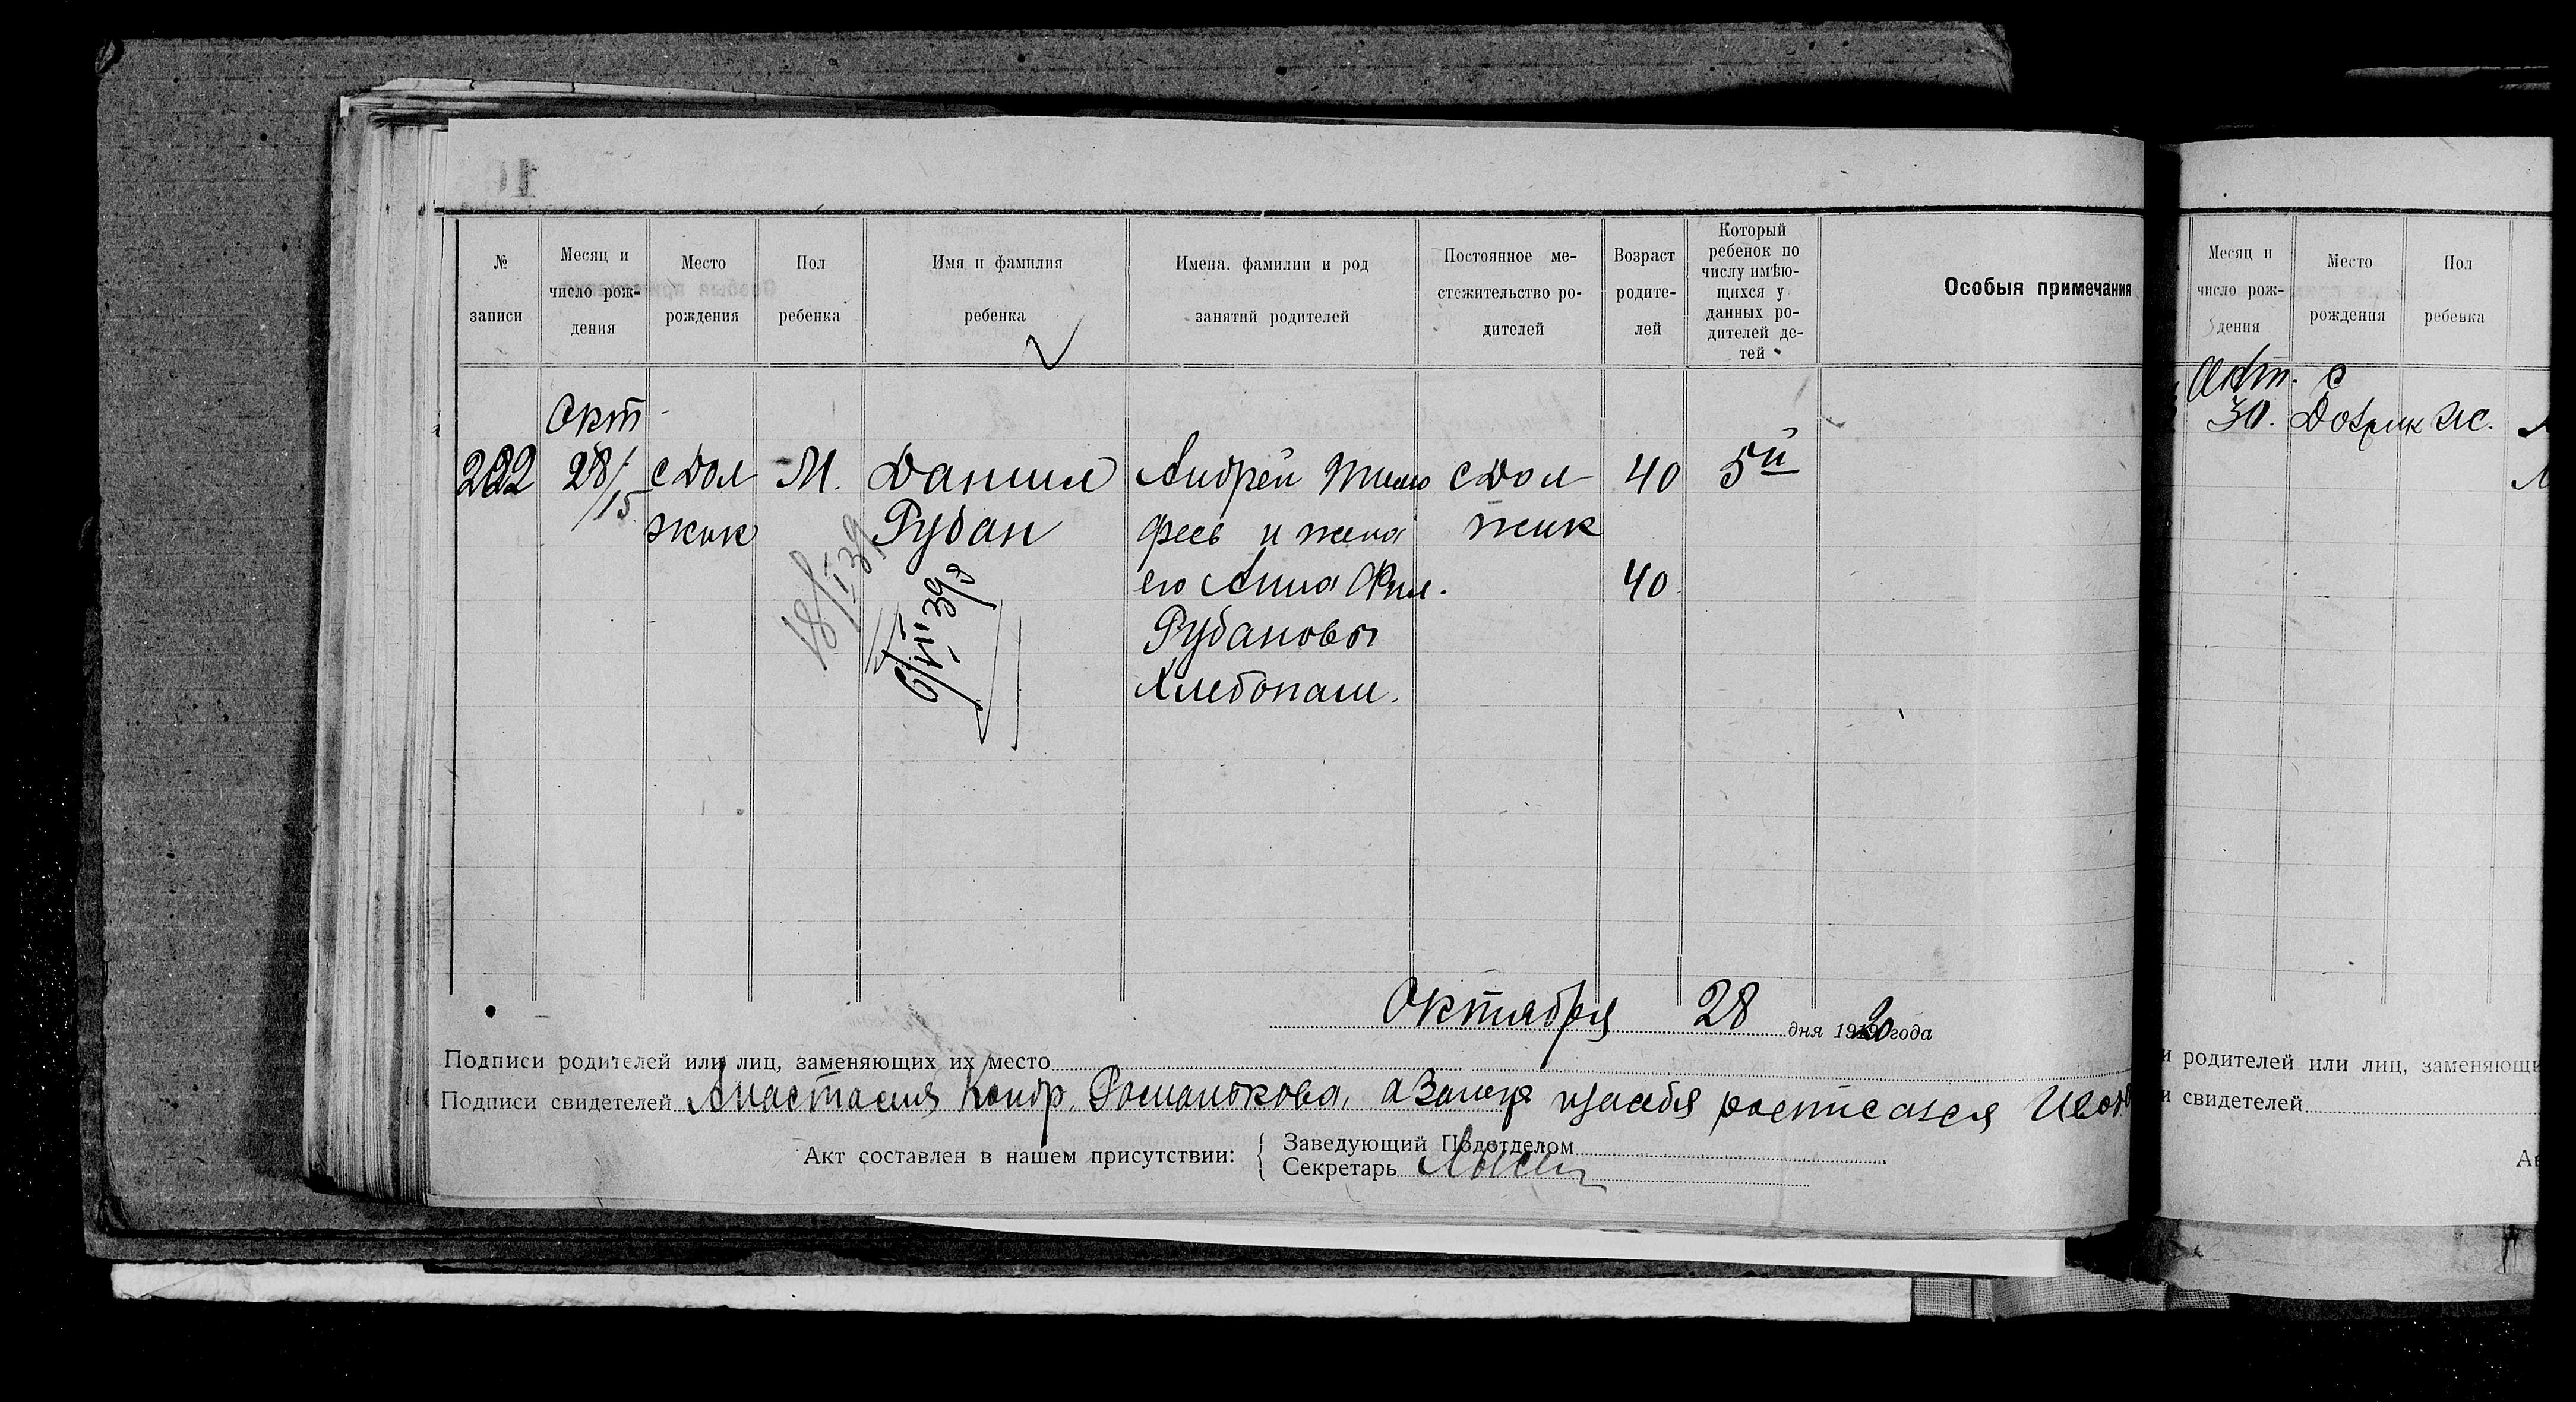 № записи
Месяц и число рождения
Место рождения
Пол ребенка
Имя и фамилия ребенка
Имена. фамилии и род занятий родителей
Постоянное местежительство родителей
Возраст родителей
Который ребенок по числу имѣющихся у данных родителей детей
Особыя примечания
Окт
222 28/15 с Дол М. Данил Андрей Тимо с Дол 40 5й
жик Рубан феев и жена жик
его Анна Фил. 40
Рубановы
Хлебопаш.
18/I 39
6/VII 39 г
Октября 28 дня 1920 года
Подписи родителей или лиц, заменяющих их место
Подписи свидетелей Анастасия Кондр. Романюкова, а за неуг
Акт составлен в нашем присутствии: Заведующий Подотделом
Секретарь
Месяц и число рождения
Место рождения
Пол ребенка
Окт. с
30. Должик
и родителей или лиц, заменяющи
и свидетелей